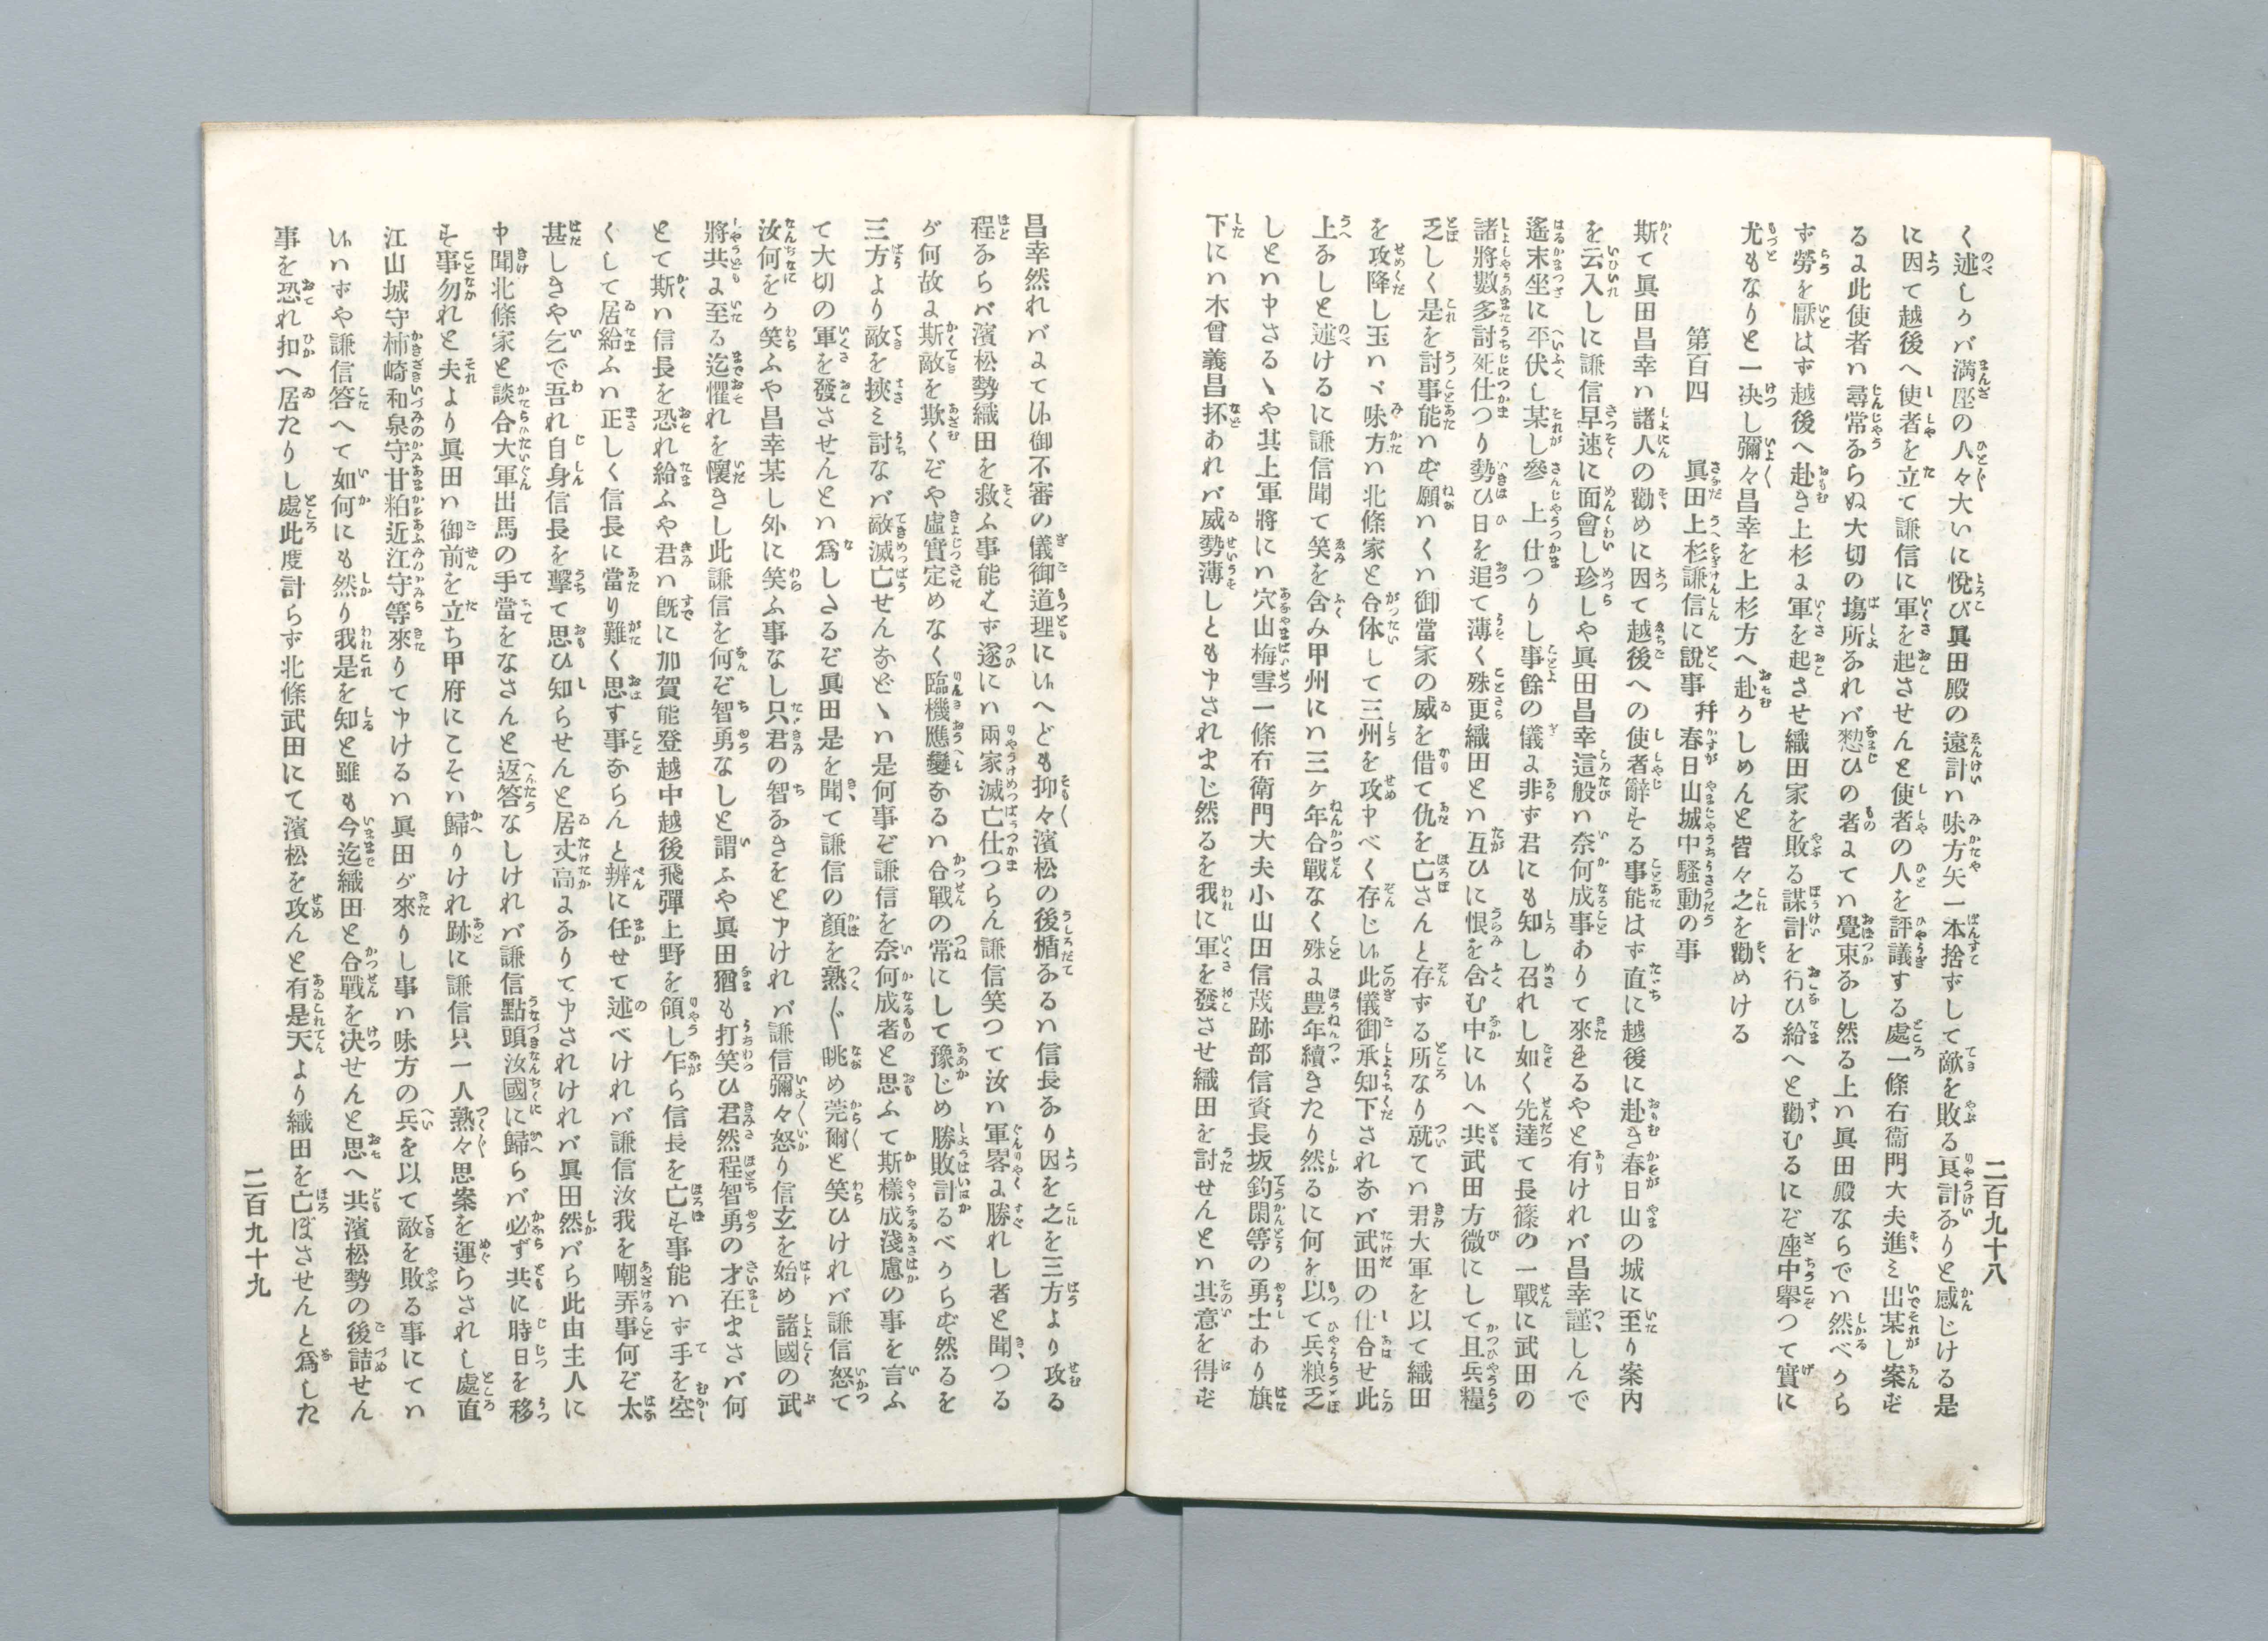 二百九十八
く述しかバ満座の人々大いに悅び眞田殿の遠計ハ味方矢一本捨ずして敵を敗る良計なりと感じける是
に因て越後へ使者を立て謙信に軍を起させんと使者の人を評議する處一條右衞門大夫進ミ出某し案ず
るに此使者ハ尋常ならぬ大切の塲所なれバ愸ひの者にてハ覺束なし然る上ハ眞田殿ならでハ然べから
ず勞を厭はず越後へ赴き上杉に軍を起させ織田家を敗る謀計を行ひ給へと勸むるにぞ座中擧つて實に
尤もなりと一决し彌々昌幸を上杉方へ赴かしめんと皆々之を勸めける
第百四　眞田上杉謙信に說事　幷春日山城中騷動の事
斯て眞田昌幸ハ諸人の勸めに因て越後への使者辭する事能はず直に越後に赴き春日山の城に至り案内
を云入しに謙信早速に面會し珍しや眞田昌幸這般ハ奈何成事ありて來きるやと有けれバ昌幸謹しんで
遙末坐に平伏し某し參上仕つりし事餘の儀に非ず君にも知し召れし如く先達て長篠の一戰に武田の
諸將數多討死仕つり勢ひ日を追て薄く殊更織田とハ互ひに恨を含む中にいへ共武田方微にして且兵糧
乏しく是を討事能ハず願ハくハ御當家の威を借て仇を亡さんと存ずる所なり就てハ君大軍を以て織田
を攻降し玉ハヾ味方ハ北條家と合体して三州を攻申べく存じい此儀御承知下されなバ武田の仕合せ此
上なしと述けるに謙信聞て笑を含み甲州にハ三ケ年合戰なく殊に豊年續きたり然るに何を以て兵粮乏
しとハ申さるヽや其上軍將にハ穴山梅雪一條右衛門大夫小山田信茂跡部信資長坂釣閑等の勇士あり旗
下にハ木曾義昌抔あれバ威勢薄しとも申されまじ然るを我に軍を發させ織田を討せんとハ其意を得ず
昌幸然れバにてい御不審の儀御道理にいへども抑々濱松の後楯なるハ信長なり因を之を三方より攻る
程ならバ濱松勢織田を救ふ事能はず遂にハ兩家滅亡仕つらん謙信笑つて汝ハ軍畧に勝れし者と聞つる
が何故に斯敵を欺くぞや虛實定めなく臨機應變なるハ合戰の常にして豫じめ勝敗計るべからず然るを
三方より敵を挾ミ討なバ敵滅亡せんなどヽハ是何事ぞ謙信を奈何成者と思ふて斯樣成淺慮の事を言ふ
て大切の軍を發させんとハ爲しさるぞ眞田是を聞て謙信の顏を熟〴〵眺め莞爾と笑ひけれバ謙信怒て
汝何をか笑ふや昌幸某し外に笑ふ事なし只君の智なきをと申けれバ謙信彌々怒り信玄を始め諸國の武
將共に至る迄懼れを懷きし此謙信を何ぞ智勇なしと謂ふや眞田猶も打笑ひ君然程智勇の才在まさバ何
とて斯ハ信長を恐れ給ふや君ハ旣に加賀能登越中越後飛彈上野を領し乍ら信長を亡す事能ハず手を空
くして居給ふハ正しく信長に當り難く思す事ならんと辨に任せて述べけれバ謙信汝我を嘲弄事何ぞ太
甚しきや乞で吾れ自身信長を擊て思ひ知らせんと居丈高になりて申されけれバ眞田然バら此由主人に
申聞北條家と談合大軍出馬の手當をなさんと返答なしけれバ謙信點頭汝國に歸らバ必ず共に時日を移
す事勿れと夫より眞田ハ御前を立ち甲府にこそハ歸りけれ跡に謙信只一人熟々思案を運らされし處直
江山城守柿崎和泉守甘粕近江守等來りて申けるハ眞田が來りし事ハ味方の兵を以て敵を敗る事にてハ
いハずや謙信答へて如何にも然り我是を知と雖も今迄織田と合戰を决せんと思へ共濱松勢の後詰せん
事を恐れ扣へ居たりし處此度計らず北條武田にて濱松を攻んと有是天より織田を亡ぼさせんと爲した
二百九十九